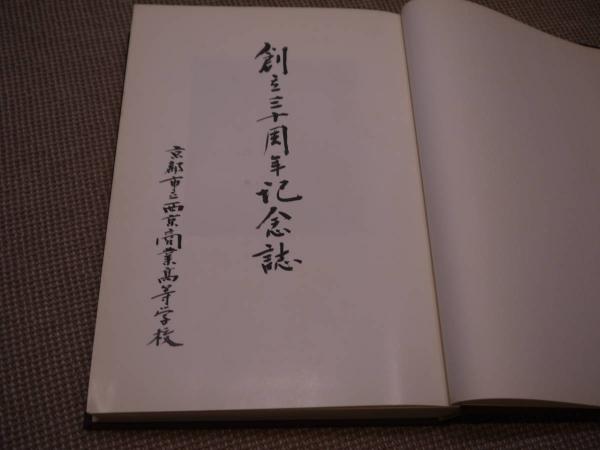 創立三十周年記念誌
京都市立西京商業高等学校